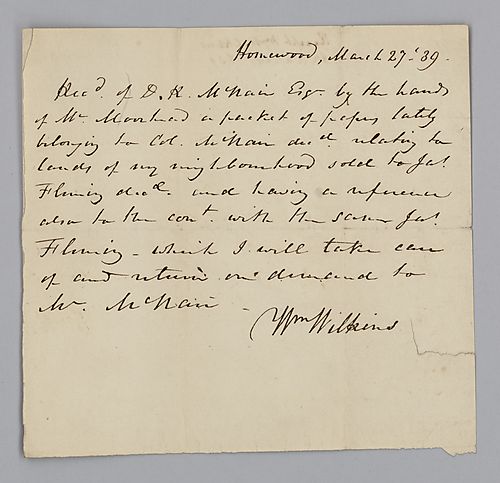 Homewood, March 27.' 39.
Rec.d of D. R. McNair Esq. by the hands
of Mr Moorhead a packet of papers lately
belonging to Col. McNair dec.d relating to
lands of my neighbourhood sold to Jas.
Fleming dec.d and having a reference
also to the cont. with the same Jas.
Fleming - which I will take care
of and return on demand to
Mr. McNair -
Wm Wilkins